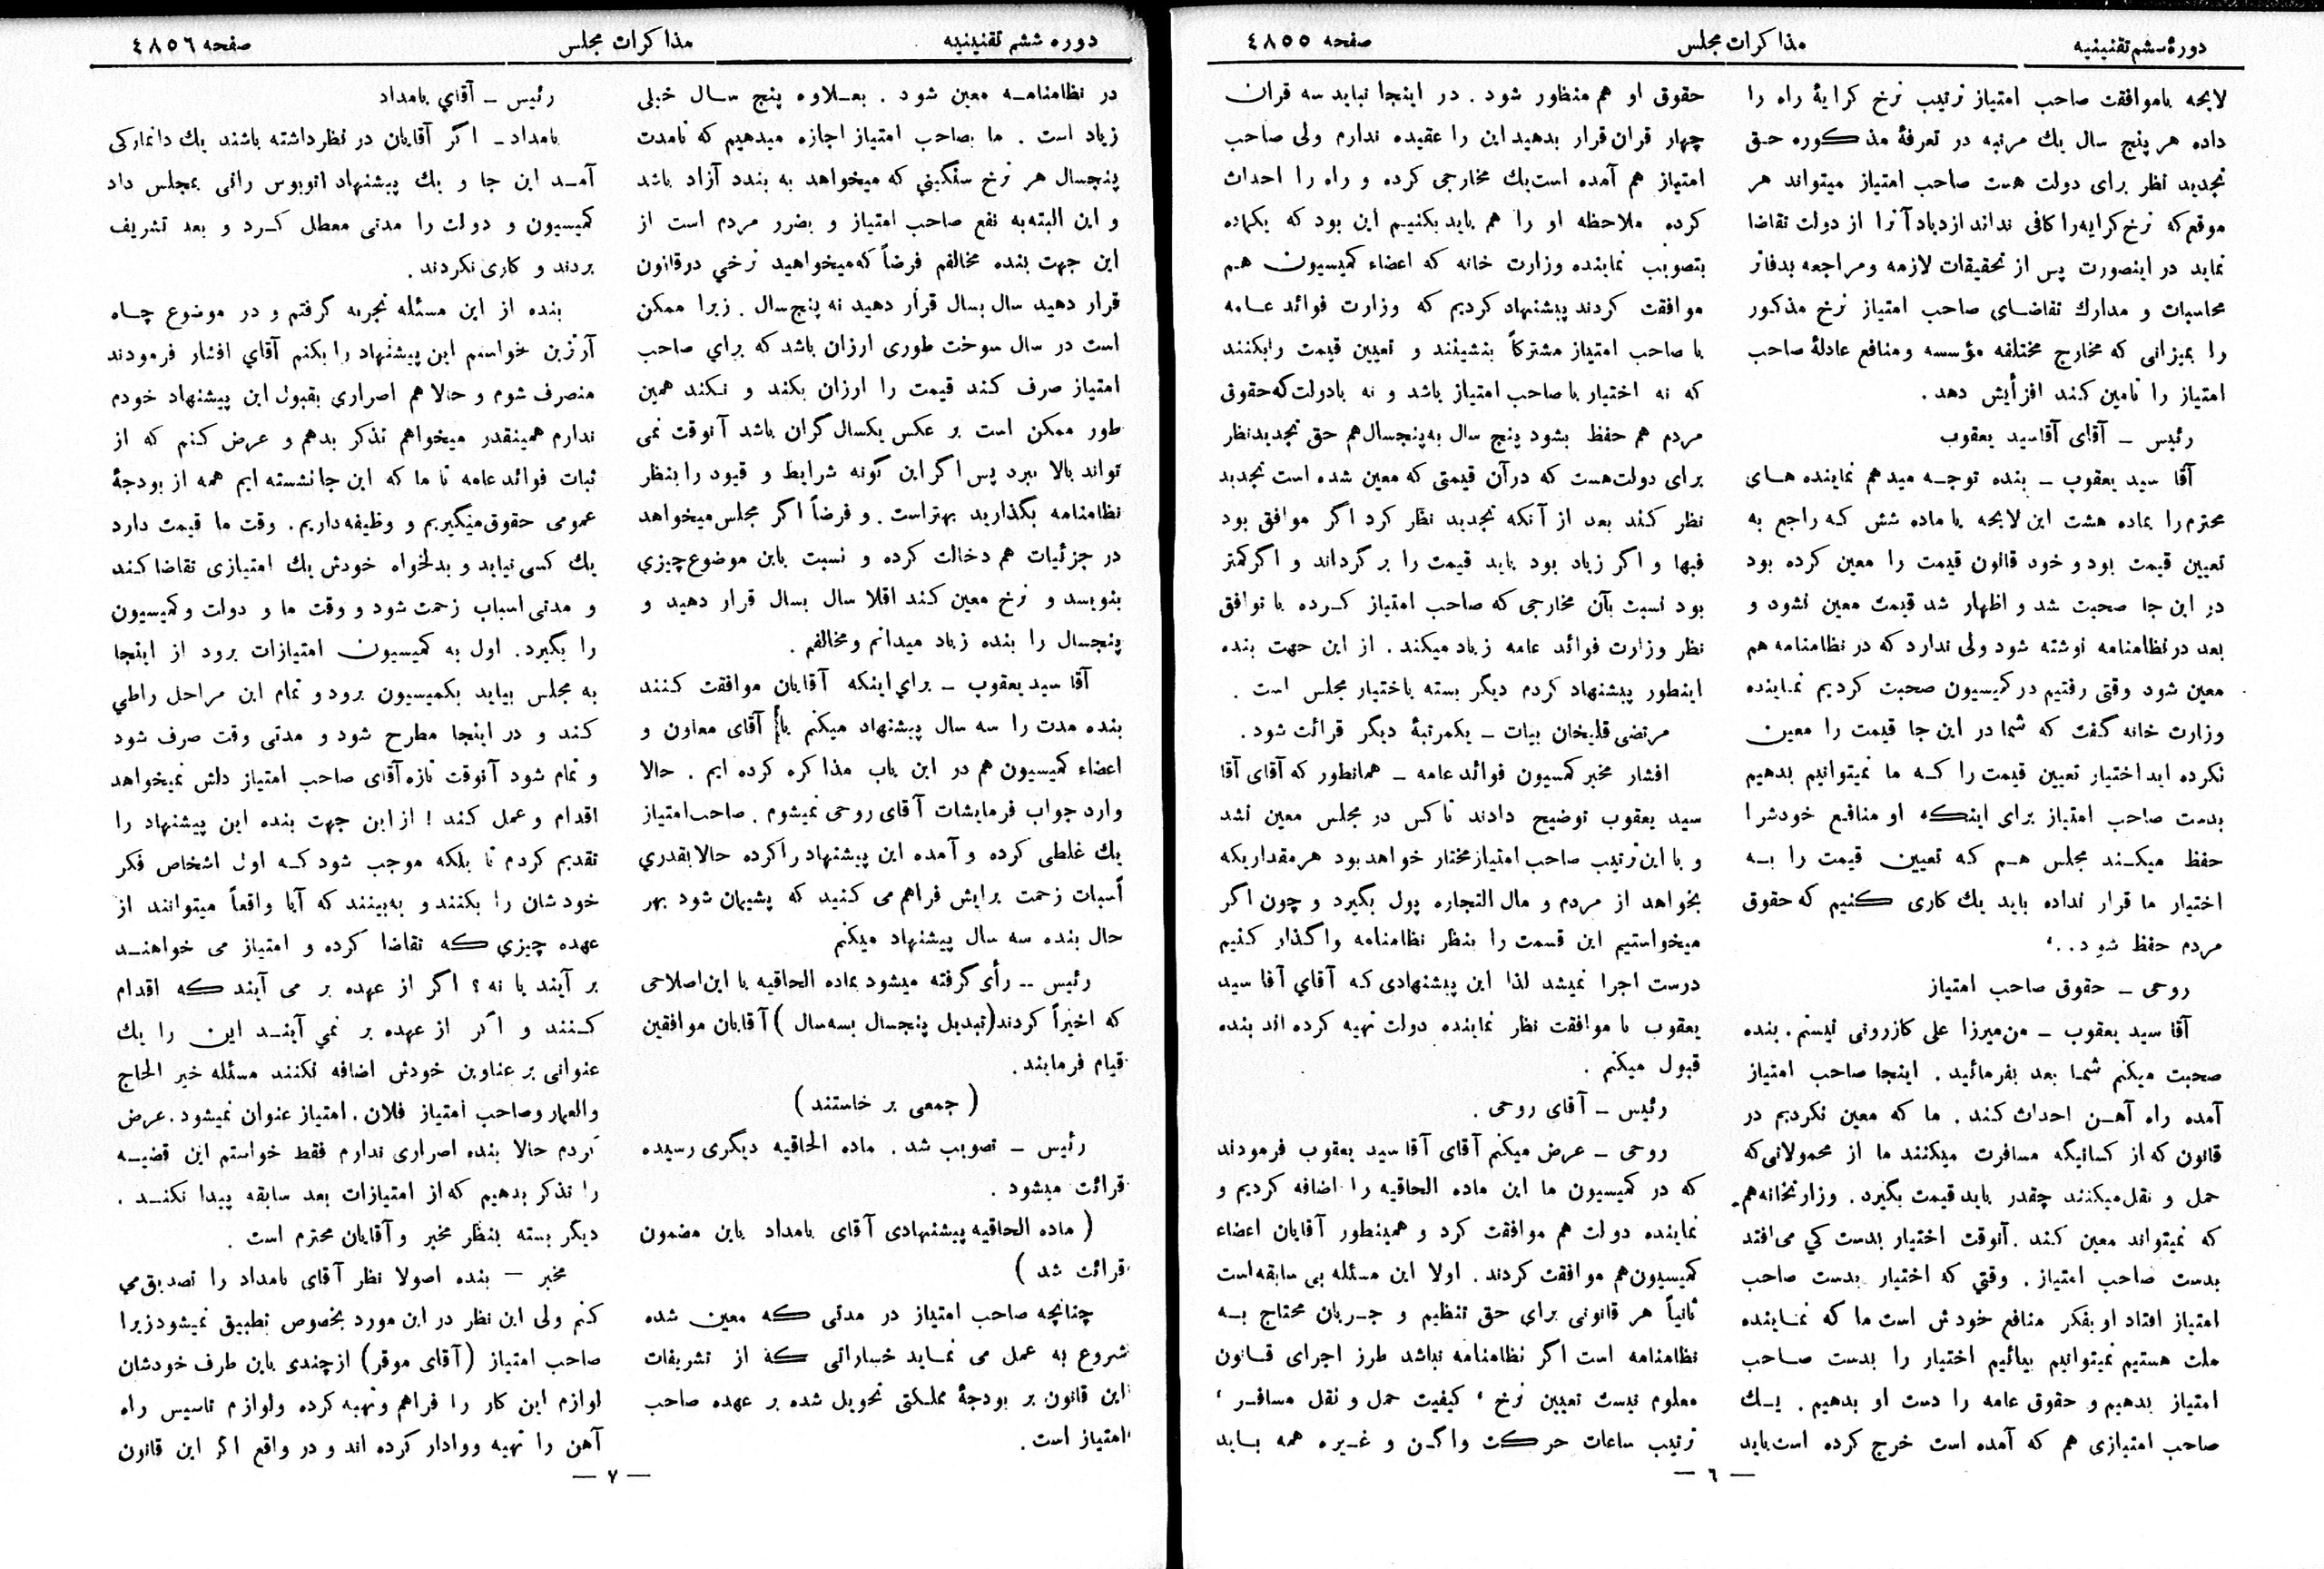 دورهٔ ششم تقنینیه
مذاکرات مجلس
صفحه ٤٨٥٥
لایحه باموافقت صاحب امتیاز ترتیب نرخ کرایهٔ راه را
داده هر پنج سال یك مرتبه در تعرفهٔ مذکوره حق
تجدید نظر برای دولت هست صاحب امتیاز میتواند هر
موقع که نرخ کرایه را کافی نداند ازدیاد آنرا از دولت تقاضا
نماید در اینصورت پس از تحقیقات لازمه ومراجعه بدفاتر
محاسبات و مدارك تقاضای صاحب امتیاز نرخ مذکور
را بمیزانی که مخارج مختلفه مؤسسه ومنافع عادلهٔ صاحب
امتیاز را تامین کند افزایش دهد .
رئیس – آقای آقاسید یعقوب
آقا سید یعقوب – بنده توجه میدهم نماینده های
محترم را بماده هشت این لایحه یا ماده شش که راجع به
تعیین قیمت بود و خود قانون قیمت را معین کرده بود
در این جا صحبت شد و اظهار شد قیمت معین نشود و
بعد در نظامنامه نوشته شود ولی ندارد که در نظامنامه هم
معین شود وقتی رفتیم در کمیسیون صحبت کردیم نماینده
وزارت خانه گفت که شما در این جا قیمت را معین
نکرده اید اختیار تعیین قیمت را که ما نمیتوانیم بدهیم
بدست صاحب امتیاز برای اینکه او منافع خودش را
حفظ میکند مجلس هم که تعیین قیمت را به
اختیار ما قرار نداده باید یك کاری کنیم که حقوق
مردم حفظ شود..،
روحی – حقوق صاحب امتیاز
آقا سید یعقوب – من میرزا علی کازرونی نیستم. بنده
صحبت میکنم شما بعد بفرمائید . اینجا صاحب امتیاز
آمده راه آهن احداث کند . ما که معین نکردیم در
قانون که از کسانیکه مسافرت میکنند ما از محمولاتی که
حمل و نقل میکنند چقدر باید قیمت بگیرد . وزارتخانه هم
که نمیتواند معین کند . آنوقت اختیار بدست کی می افتد
بدست صاحب امتیاز . وقتی که اختیار بدست صاحب
امتیاز افتاد او بفکر منافع خودش است ما که نماینده
ملت هستیم نمیتوانیم بیائیم اختیار را بدست صاحب
امتیاز بدهیم و حقوق عامه را دست او بدهیم . یك
صاحب امتیازی هم که آمده است خرج کرده است باید
حقوق او هم منظور شود . در اینجا نباید سه قران
چهار قران قرار بدهید این را عقیده ندارم ولی صاحب
امتیاز هم آمده است یك مخارجی کرده و راه را احداث
کرده ملاحظه او را هم باید بکنیم این بود که یکماده
بتصویب نماینده وزارت خانه که اعضاء کمیسیون هم
موافقت کردند پیشنهاد کردیم که وزارت فوائد عامه
با صاحب امتیاز مشترکاً بنشینند و تعیین قیمت را بکنند
که نه اختیار با صاحب امتیاز باشد و نه با دولت که حقوق
مردم هم حفظ بشود پنج سال به پنجسال هم حق تجدید نظر
برای دولت هست که در آن قیمتی که معین شده است تجدید
نظر کند بعد از آنکه تجدید نظر کرد اگر موافق بود
فبها و اگر زیاد بود باید قیمت را بر گرداند و اگر کمتر
بود نسبت بآن مخارجی که صاحب امتیاز کرده با توافق
نظر وزارت فوائد عامه زیاد میکند . از این جهت بنده
اینطور پیشنهاد کردم دیگر بسته باختیار مجلس است .
مرتضی قلیخان بیات – یکمرتبهٔ دیگر قرائت شود .
افشار مخبر کمسیون فوائد عامه – همانطور که آقای آقا
سید یعقوب توضیح دادند تاکس در مجلس معین نشد
و با این ترتیب صاحب امتیاز مختار خواهد بود هر مقداریکه
بخواهد از مردم و مال التجاره پول بگیرد و چون اگر
میخواستیم این قسمت را بنظر نظامنامه واگذار کنیم
درست اجرا نمیشد لذا این پیشنهادی که آقای آقا سید
یعقوب با موافقت نظر نماینده دولت تهیه کرده اند بنده
قبول میکنم .
رئیس – آقای روحی .
روحی – عرض میکنم آقای آقا سید یعقوب فرمودند
که در کمیسیون ما این ماده الحاقیه را اضافه کردیم و
نماینده دولت هم موافقت کرد و همینطور آقایان اعضاء
کمیسیون هم موافقت کردند . اولا این مسئله بی سابقه است
ثانیاً هر قانونی برای حق تنظیم و جریان محتاج به
نظامنامه است اگر نظامنامه نباشد طرز اجرای قانون
معلوم نیست تعیین نرخ ، کیفیت حمل و نقل مسافر ،
ترتیب ساعات حرکت واگن و غیره همه باید
— ٦ —
دوره ششم تقنینیه
مذاکرات مجلس
صفحه ٤٨٥٦
در نظامنامه معین شود . بعلاوه پنج سال خیلی
زیاد است . ما بصاحب امتیاز اجازه میدهیم که تامدت
پنجسال هر نرخ سنگینی که میخواهد به بندد آزاد باشد
و این البته به نفع صاحب امتیاز و بضرر مردم است از
این جهت بنده مخالفم فرضاً که میخواهید نرخی در قانون
قرار دهید سال بسال قرار دهید نه پنج سال . زیرا ممکن
است در سال سوخت طوری ارزان باشد که برای صاحب
امتیاز صرف کند قیمت را ارزان بکند و نکند همین
طور ممکن است بر عکس یکسال گران باشد آنوقت نمی
تواند بالا ببرد پس اگر این گونه شرایط و قیود را بنظر
نظامنامه بگذارید بهتر است . و فرضاً اگر مجلس میخواهد
در جزئیات هم دخالت کرده و نسبت باین موضوع چیزی
بنویسد و نرخ معین کند اقلا سال بسال قرار دهید و
پنجسال را بنده زیاد میدانم و مخالفم .
آقا سید یعقوب – برای اینکه آقایان موافقت کنند
بنده مدت را سه سال پیشنهاد میکنم با آقای معاون و
اعضاء کمیسیون هم در این باب مذاکره کرده ایم . حالا
وارد جواب فرمایشات آقای روحی نمیشوم . صاحب امتیاز
یك غلطی کرده و آمده این پیشنهاد را کرده حالا بقدری
اسبات زحمت برایش فراهم می کنید که پشیمان شود بهر
حال بنده سه سال پیشنهاد میکنم
رئیس -- رأی گرفته میشود بماده الحاقیه با این اصلاحی
که اخیراً کردند (تبدیل پنجسال بسه سال ) آقایان موافقین
قیام فرمایند .
( جمعی بر خاستند )
رئیس – تصویب شد . ماده الحاقیه دیگری رسیده
قرائت میشود .
( ماده الحاقیه پیشنهادی آقای بامداد باین مضمون
قرائت شد )
چنانچه صاحب امتیاز در مدتی که معین شده
شروع به عمل می نماید خساراتی که از تشریفات
این قانون بر بودجهٔ مملکتی تحویل شده بر عهده صاحب
امتیاز است .
رئیس – آقای بامداد
بامداد – اگر آقایان در نظر داشته باشند یك دانمارکی
آمد این جا و یك پیشنهاد اتوبوس رانی بمجلس داد
کمیسیون و دولت را مدتی معطل کرد و بعد تشریف
بردند و کاری نکردند .
بنده از این مسئله تجربه گرفتم و در موضوع چاه
آرتزین خواستم این پیشنهاد را بکنم آقای افشار فرمودند
منصرف شوم و حالا هم اصراری بقبول این پیشنهاد خودم
ندارم همینقدر میخواهم تذکر بدهم و عرض کنم که از
ثبات فوائد عامه تا ما که این جا نشسته ایم همه از بودجهٔ
عمومی حقوق میگیریم و وظیفه داریم . وقت ما قیمت دارد
یك کسی نیاید و بدلخواه خودش یك امتیازی تقاضا کند
و مدتی اسباب زحمت شود و وقت ما و دولت و کمیسیون
را بگیرد . اول به کمیسیون امتیازات برود از اینجا
به مجلس بیاید بکمیسیون برود و تمام این مراحل را طی
کند و در اینجا مطرح شود و مدتی وقت صرف شود
و تمام شود آنوقت تازه آقای صاحب امتیاز دلش نمیخواهد
اقدام و عمل کند ! از این جهت بنده این پیشنهاد را
تقدیم کردم تا بلکه موجب شود که اول اشخاص فکر
خودشان را بکنند و به بینند که آیا واقعاً میتوانند از
عهده چیزی که تقاضا کرده و امتیاز می خواهند
بر آیند یا نه ؟ اگر از عهده بر می آیند که اقدام
کنند و اگر از عهده بر نمی آیند این را یك
عنوانی بر عناوین خودش اضافه نکنند مسئله خیر الحاج
والعمار و صاحب امتیاز فلان . امتیاز عنوان نمیشود . عرض
کردم حالا بنده اصراری ندارم فقط خواستم این قضیه
را تذکر بدهیم که از امتیازات بعد سابقه پیدا نکند .
دیگر بسته بنظر مخبر و آقایان محترم است .
مخبر – بنده اصولا نظر آقای بامداد را تصدیق می
کنم ولی این نظر در این مورد بخصوص تطبیق نمیشود زیرا
صاحب امتیاز (آقای موقر) از چندی باین طرف خودشان
لوازم این کار را فراهم و تهیه کرده و لوازم تاسیس راه
آهن را تهیه و وادار کرده اند و در واقع اگر این قانون
— ٧ —